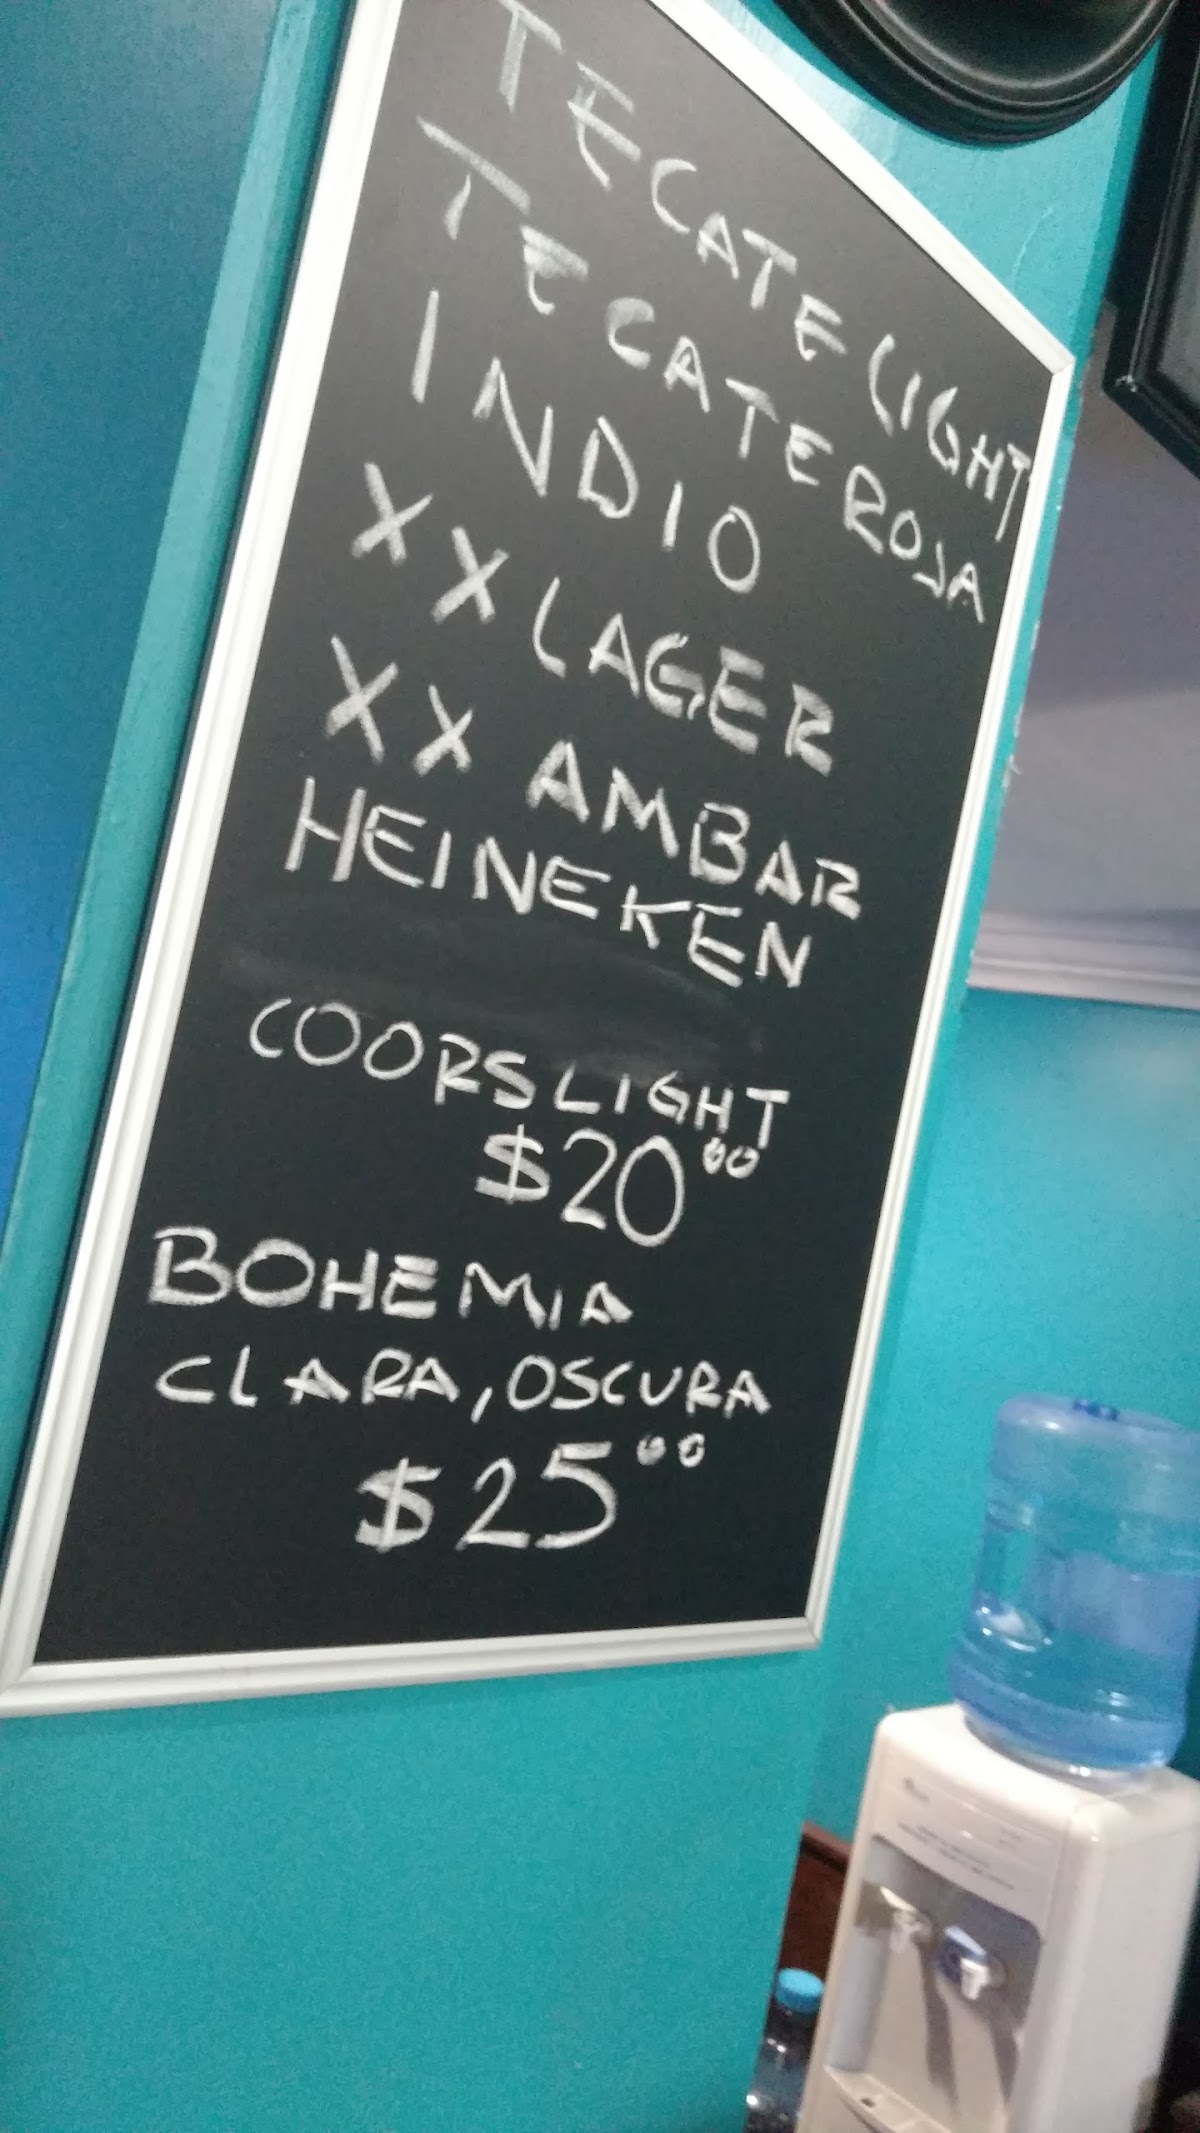 TECATE LIGHT
TECATE ROJA
INDIO
XX LAGER
XX AMBAR
HEINEKEN
COORS LIGHT
$20.00
BOHEMIA
CLARA, OSCURA
$25.00